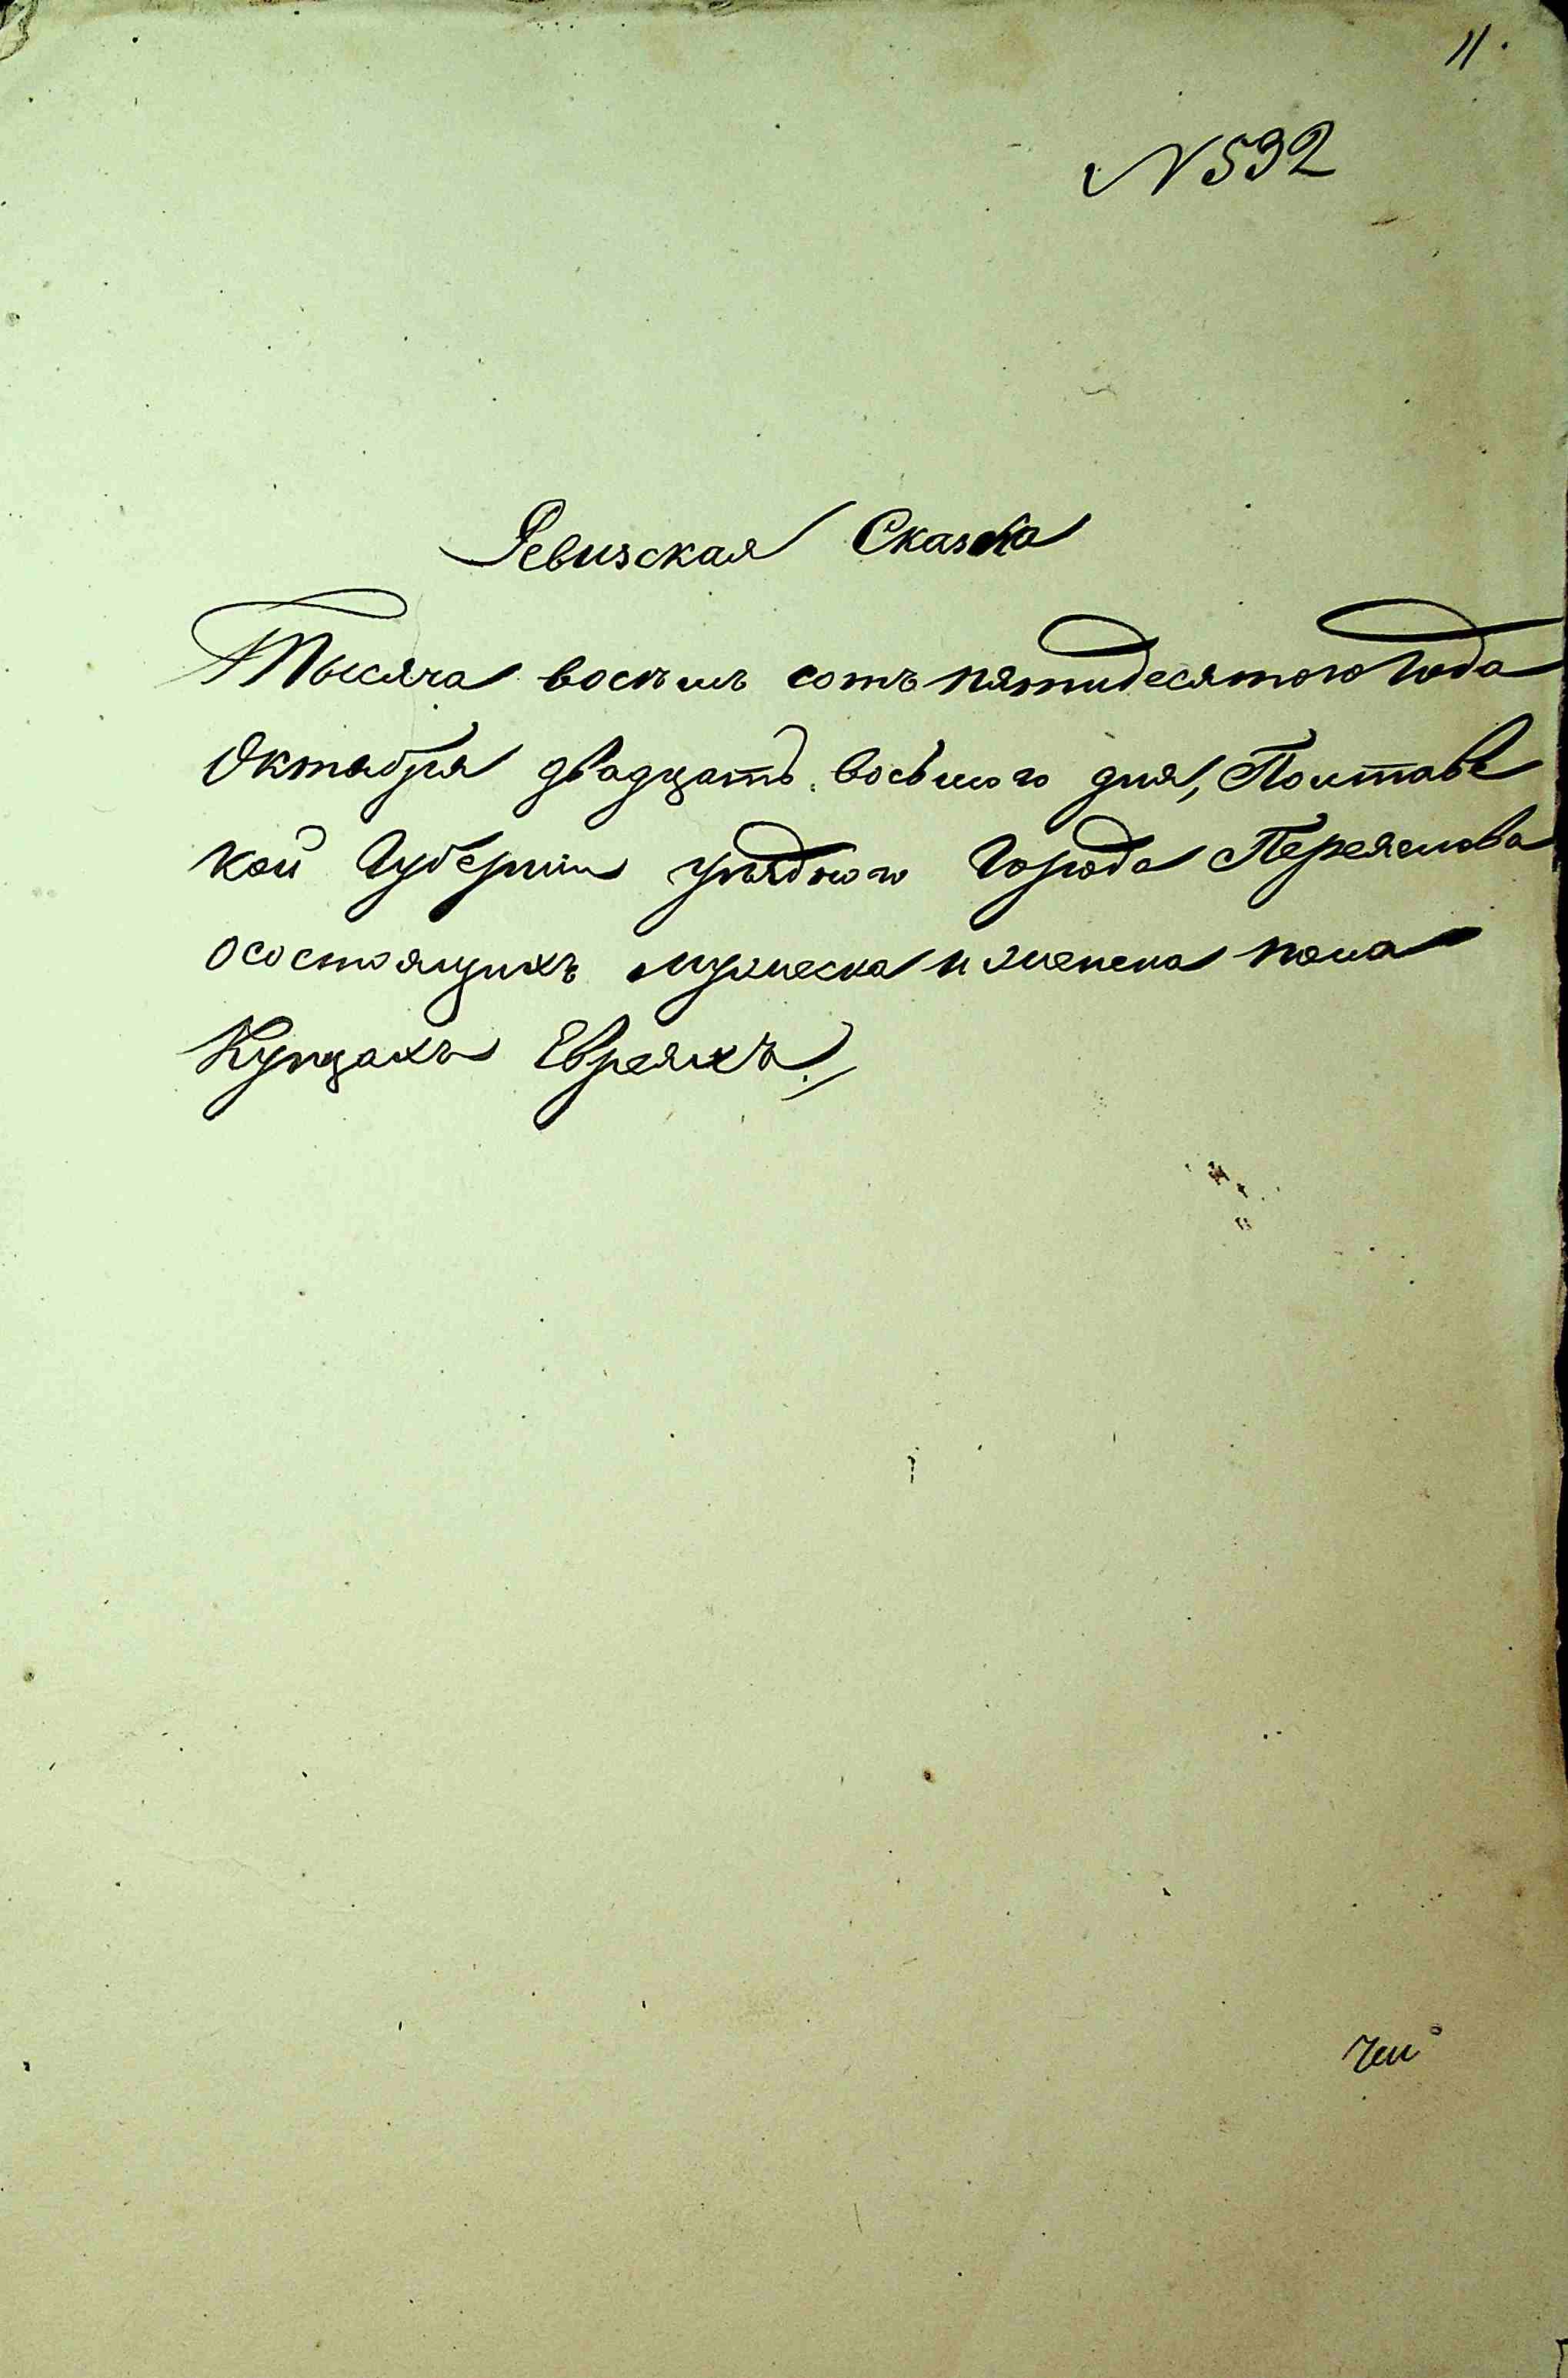 11.
N 592
Ревизская Сказка
Тысяча восемь сотъ пятидесятого Года
Октября двадцать восьмого дня, Полтавс
кой Губернiи уѣздного Города Переяслова
о состоящихъ мужеска и женска пола
Купцахъ Евреяхъ